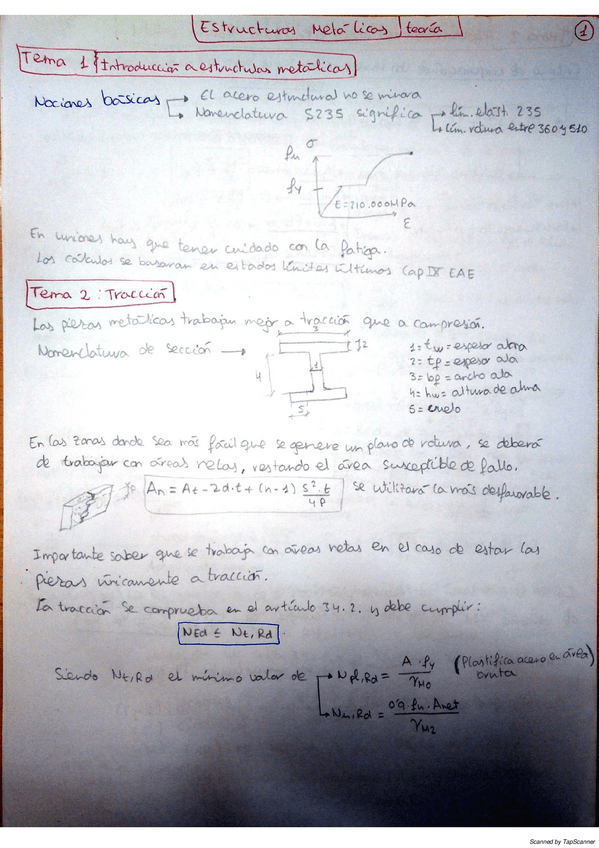 Estructuras Metálicas | teoría
1
Tema 1 | Introducción a estructuras metálicas
Nociones básicas → El acero estructural no se minora
→ Nomenclatura S235 significa → lím. elást. 235
→ Lím. rotura entre 360 y 510
σ
fu
fy
E=210.000MPa
ε
En uniones hay que tener cuidado con la fatiga.
Los cálculos se basaran en estados límites últimos Cap IX EAE
Tema 2: Tracción
Las piezas metálicas trabajan mejor a tracción que a compresión.
Nomenclatura de sección →
3
2
1
4
5
1 = tw = espesor alma
2 = tf = espesor ala
3 = bf = ancho ala
4 = hw = altura de alma
5 = vuelo
En las zonas donde sea más fácil que se genere un plano de rotura, se deberá
de trabajar con áreas netas, restando el área susceptible de fallo.
An = At - 2d·t + (n-1) s²·t / 4P se utilizará la más desfavorable.
Importante saber que se trabaja con áreas netas en el caso de estar las
piezas únicamente a tracción.
La tracción se comprueba en el artículo 34.2. y debe cumplir:
NEd ≤ Nt,Rd
Siendo Nt,Rd el mínimo valor de → Npl,Rd = A·fy / γM0 (Plastifica acero en área bruta)
→ Nu,Rd = 0'9·fu·Anet / γM2
Scanned by TapScanner